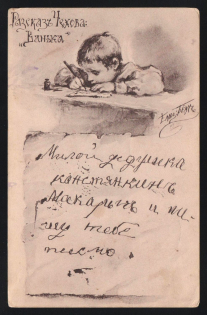 Разсказъ Чехова.
„Ванька“
Милой дедушка
констянкинъ
Макарычъ и пи-
шу тебе
писмо